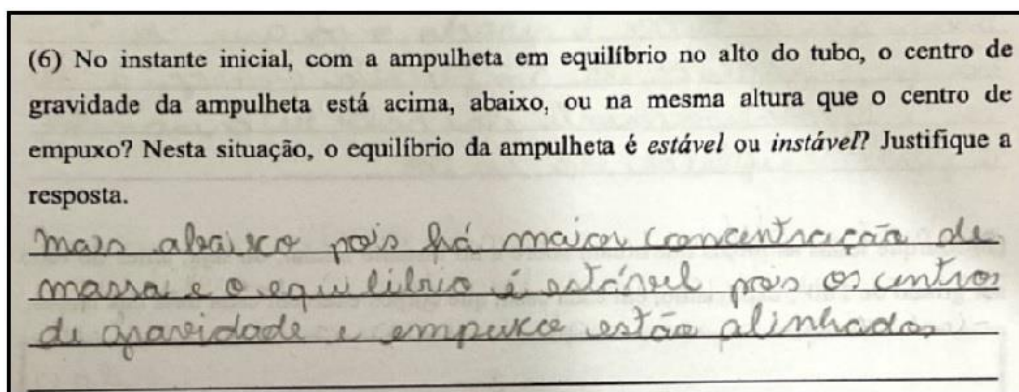 (6) No instante inicial, com a ampulheta em equilíbrio no alto do tubo, o centro de
gravidade da ampulheta está acima, abaixo, ou na mesma altura que o centro de
empuxo? Nesta situação, o equilíbrio da ampulheta é estável ou instável? Justifique a
resposta.
mais abaixo pois há maior concentração de
massa e o equilíbrio é estável pois os centros
de gravidade e empuxo estão alinhados